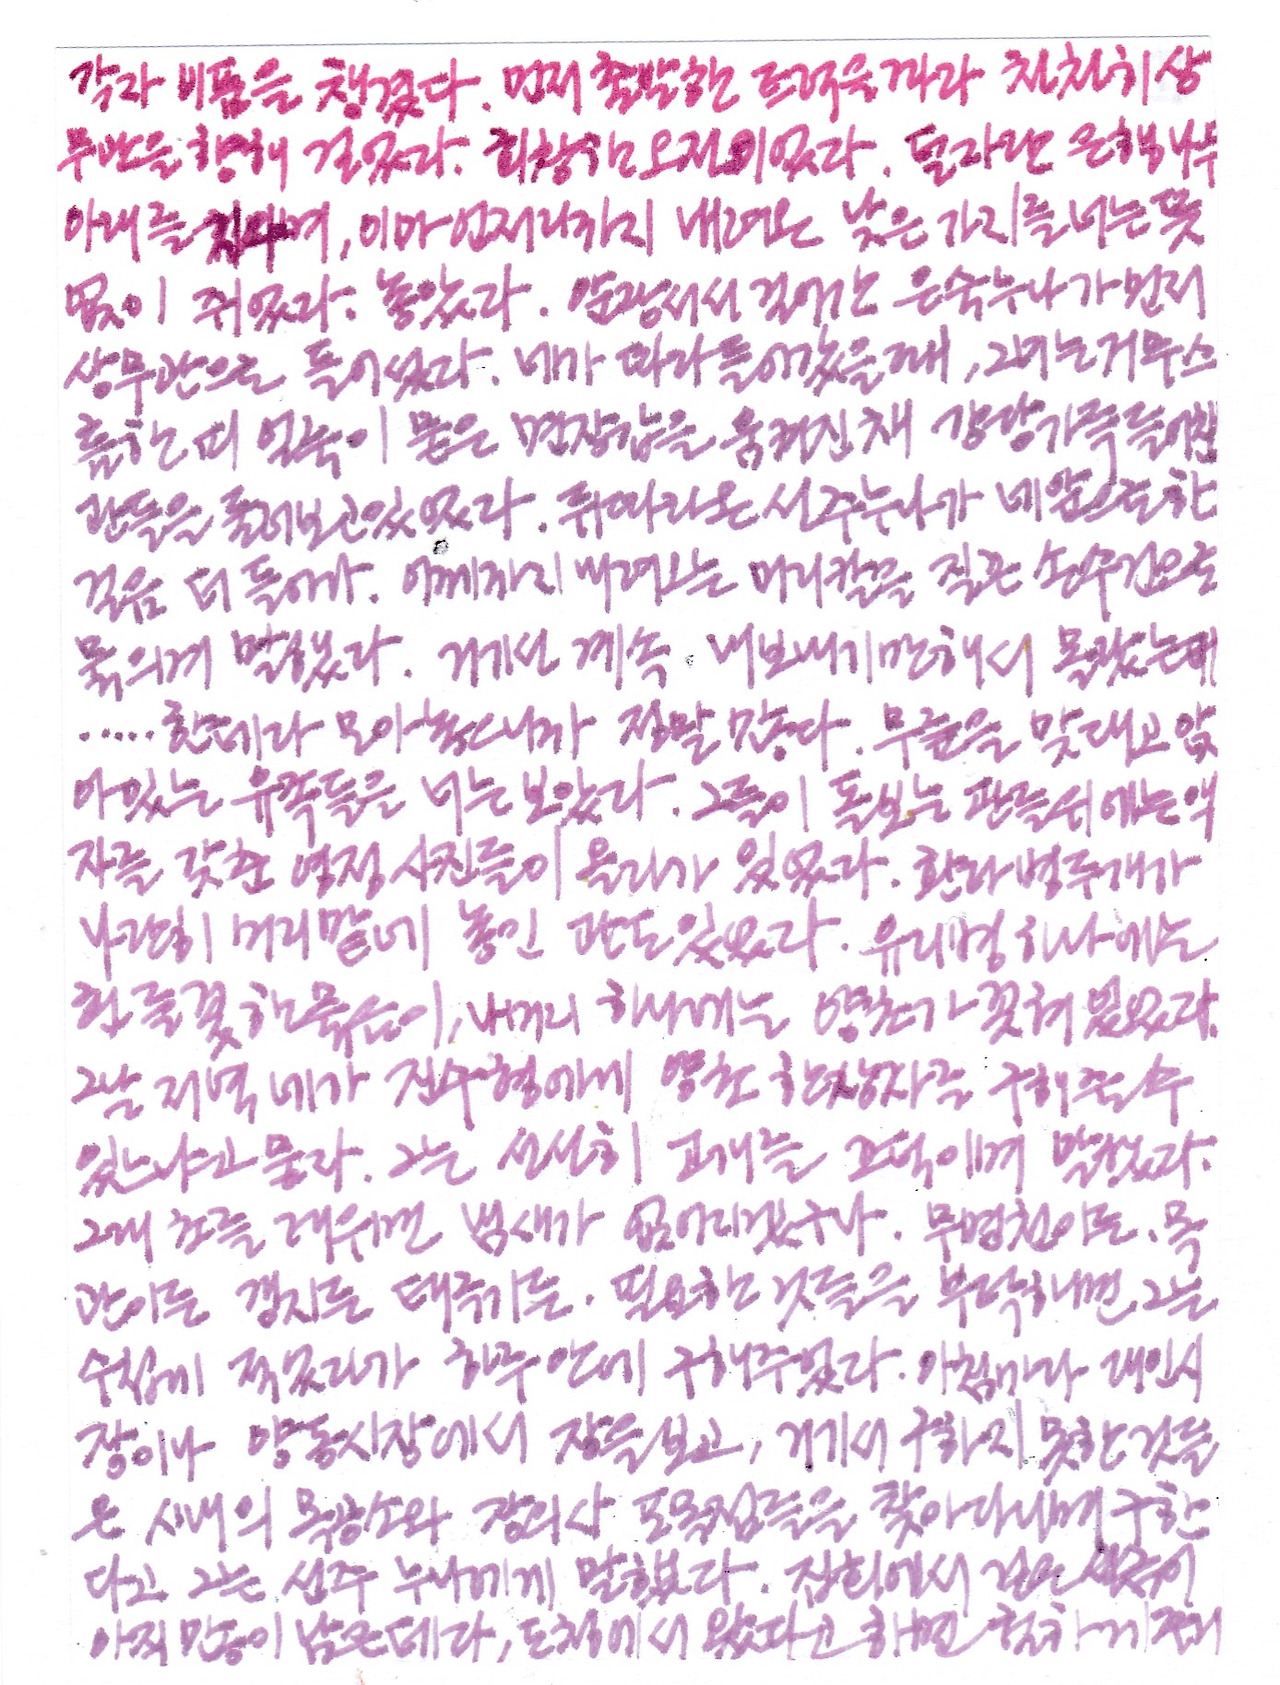 각자 비품을 챙겼다. 먼저 출발한 트럭을 따라 천천히 상
무관을 향해 걸었다. 화창한 오전이었다. 덜 자란 은행나무
아래를 지나며, 이마 언저리까지 내려온 낮은 가지를 너는 뜻
없이 쥐었다. 놓았다. 앞장서서 걸어간 은숙 누나가 먼저
상무관으로 들어섰다. 네가 따라 들어갔을 때, 그녀는 거무스
름한 피 얼룩이 묻은 면장갑을 움켜쥔 채 강당 가득 들어찬
관들을 둘러보고 있었다. 뒤따라온 선주 누나가 네 앞으로 한
걸음 더 들어가. 어깨까지 내려오는 머리칼을 질끈 손수건으로
묶으며 말했다. 거기선 계속 내보내기만 해서 몰랐는데
.....한데다 모아놓으니까 정말 많다. 무릎을 맞대고 앉
아 있는 유족들을 너는 보았다. 그들이 돌보는 관들 위에는 액
자를 갖춘 영정 사진들이 올라가 있었다. 환타 병 두 개가
나란히 머리맡에 놓인 관도 있었다. 유리병 하나에는
흰 들꽃 한 묶음이, 나머지 하나에는 양초가 꽂혀 있었다.
그날 저녁 네가 진수 형에게 양초 한 상자를 구해줄 수
있느냐고 묻자. 그는 선선히 고개를 끄덕이며 말했다.
그래 초를 태우면 냄새가 없어지겠구나. 무명천이든. 목
관이든 갱지든 태극기든. 필요한 것들을 부탁하면 그는
수첩에 적었다가 하루 안에 구해주었다. 아침마다 대인시
장이나 양동시장에서 장을 보고, 거기서 구하지 못한 것들
은 시내의 목공소와 장의사 포목점들을 찾아다니며 구한
다고 그는 선주 누나에게 말했다. 집회에서 걷은 성금이
아직 많이 남은 데다, 도청에서 왔다고 하면 헐하게 주거